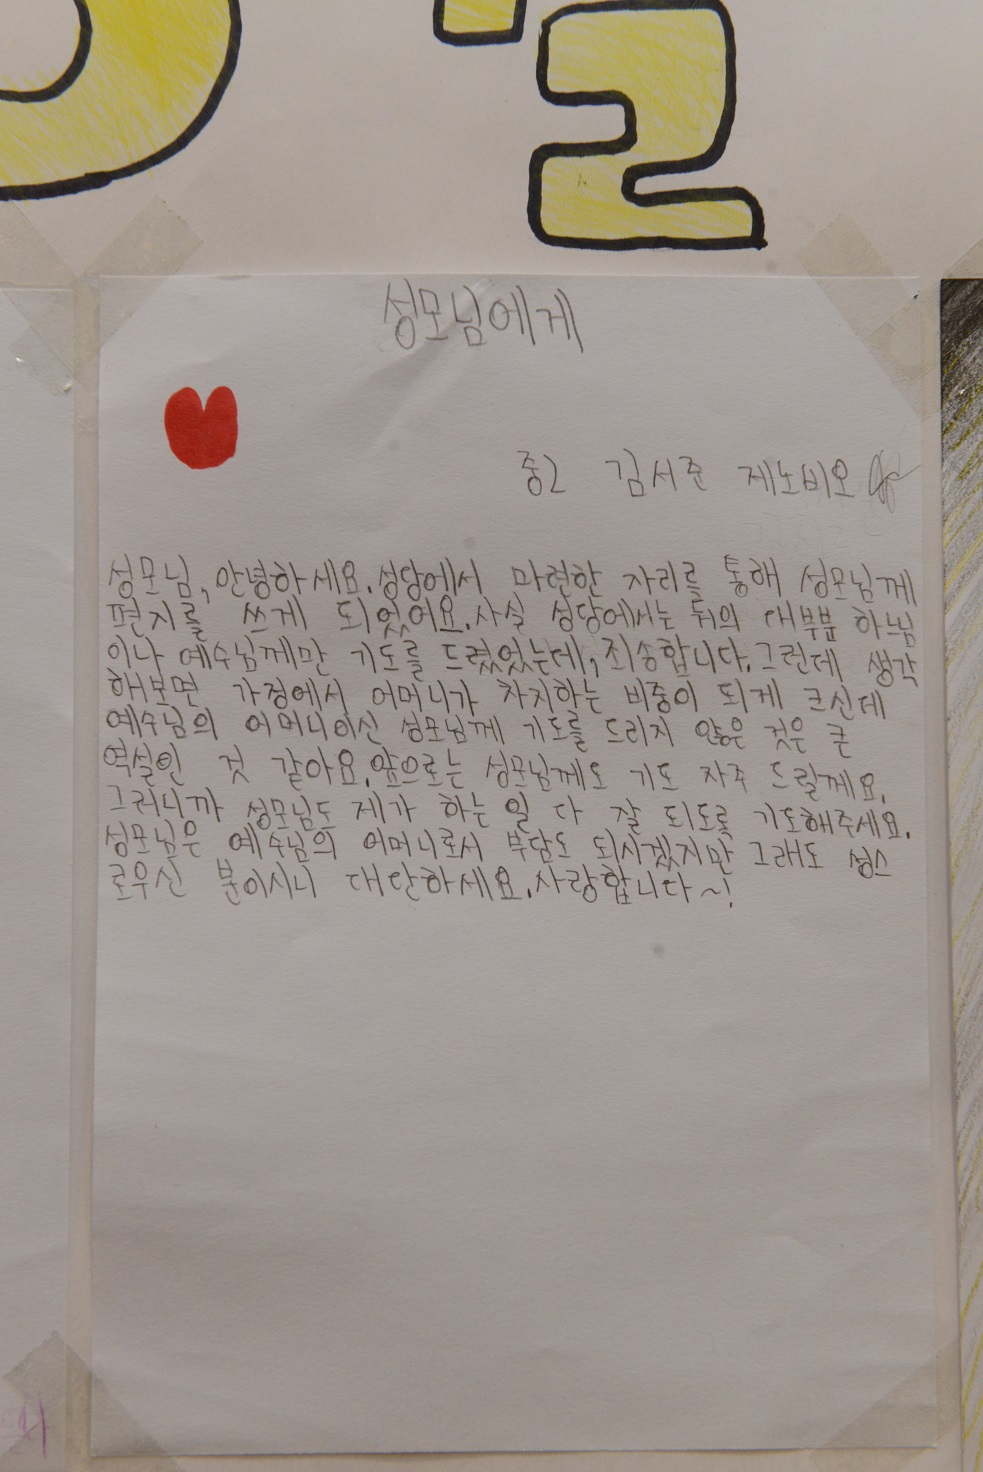 성모님에게
중2 김서준 제노비오
성모님, 안녕하세요. 성당에서 마련한 자리를 통해 성모님께
편지를 쓰게 되었어요. 사실 성당에서는 뒤의 대부분 하느님
이나 예수님께만 기도를 드렸었는데, 죄송합니다. 그런데 생각
해보면 가정에서 어머니가 차지하는 비중이 되게 크신데
예수님의 어머니이신 성모님께 기도를 드리지 않은 것은 큰
역설인 것 같아요. 앞으로는 성모님께도 기도 자주 드릴께요.
그러니까 성모님도 제가 하는 일 다 잘 되도록 기도해주세요.
성모님은 예수님의 어머니로서 부담도 되시겠지만 그래도 성스
로우신 분이시니 대단하세요. 사랑합니다~!